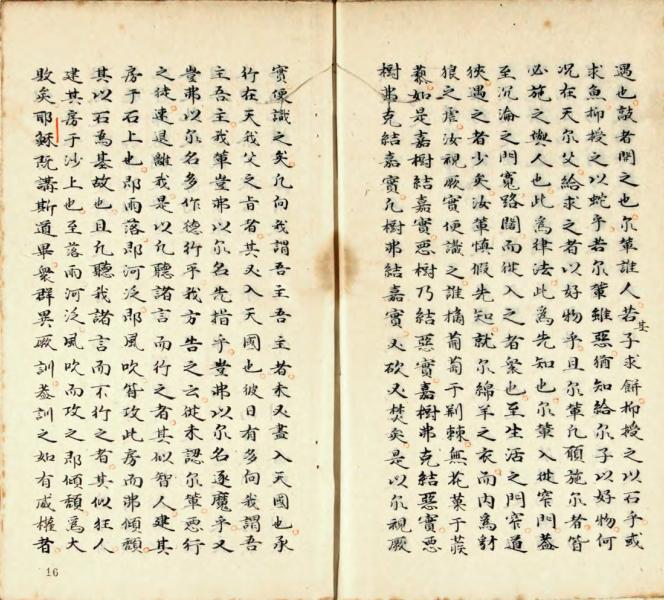 遇也敲者開之也尔等誰人若其子求餅抑授之以石乎或
求魚抑授之以蛇乎若尔輩雖惡猶知給尔子以好物何
况在天尔父給求之者以好物乎且尔等凡願施尔者皆
必施之與人也此為律法此為先知也尔等入從窄門蓋
至沉淪之門寬路闊而從入之者衆也至生活之門窄道
狹遇之者少矣汝等慎假先知就尔綿羊之衣而内為豺
狼之虐汝視厥實便識之誰摘葡萄于荆棘無花菓于蒺
藜如是嘉樹結嘉實惡樹乃結惡實嘉樹弗克結惡實惡
樹弗克結嘉實凡樹弗結嘉實又砍又焚矣是以尔視厥
實便識之矣凡向我謂吾主吾主者未又盡入天國也承
行在天我父之旨者其又入天國也彼日有多向我謂吾
主吾主我等豈弗以尔名先指乎豈弗以尔名逐魔乎又
豈弗以尔名多作德行乎我方告之云從未認尔等惡行
之徒速退離我是以凡聽諸言而行之者其似智人建其
房于石上也即雨落即河泛即風吹皆攻此房而弗傾頽
其以石為基故也且凡聽我諸言而不行之者其似狂人
建其房于沙上也至落雨河泛風吹而攻之即傾頽為大
敗矣耶穌既講斯道畢衆群異厥訓蓋訓之如有威權者
16